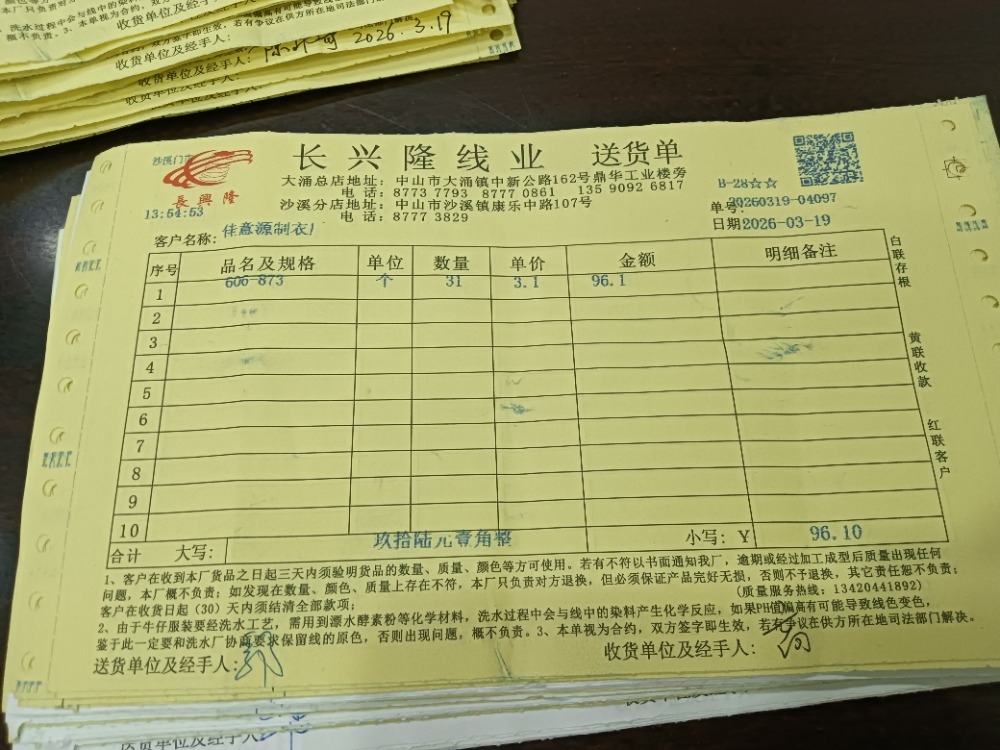 收货单位及经手人：
收货单位及经手人： 2026.3.19
收货单位及经手人：
沙溪门市
長興隆
13:54:53
长兴隆线业 送货单
大涌总店地址：中山市大涌镇中新公路162号鼎华工业楼旁
电话：8773 7793 8777 0861 135 9092 6817
沙溪分店地址：中山市沙溪镇康乐中路107号
电话：8777 3829
B-28☆☆
单号：20260319-04097
日期2026-03-19
客户名称：佳意源制衣厂
序号 品名及规格 单位 数量 单价 金额 明细备注
1 606-873 个 31 3.1 96.1
2
3
4
5
6
7
8
9
10
合计 大写： 玖拾陆元壹角整 小写：￥ 96.10
白联存根
黄联收款
红联客户
1、客户在收到本厂货品之日起三天内须验明货品的数量、质量、颜色等方可使用。若有不符以书面通知我厂，逾期或经过加工成型后质量出现任何
问题，本厂概不负责；如发现在数量、颜色、质量上存在不符，本厂只负责对方退换，但必须保证产品完好无损，否则不予退换，其它责任恕不负责；
客户在收货日起（30）天内须结清全部款项； （质量服务热线：13420441892）
2、由于牛仔服装要经洗水工艺，需用到漂水酵素粉等化学材料，洗水过程中会与线中的染料产生化学反应，如果PH值偏高有可能导致线色变色，
鉴于此一定要和洗水厂协商要求保留线的原色，否则出现问题，概不负责。3、本单视为合约，双方签字即生效，若有争议在供方所在地司法部门解决。
送货单位及经手人： 收货单位及经手人：